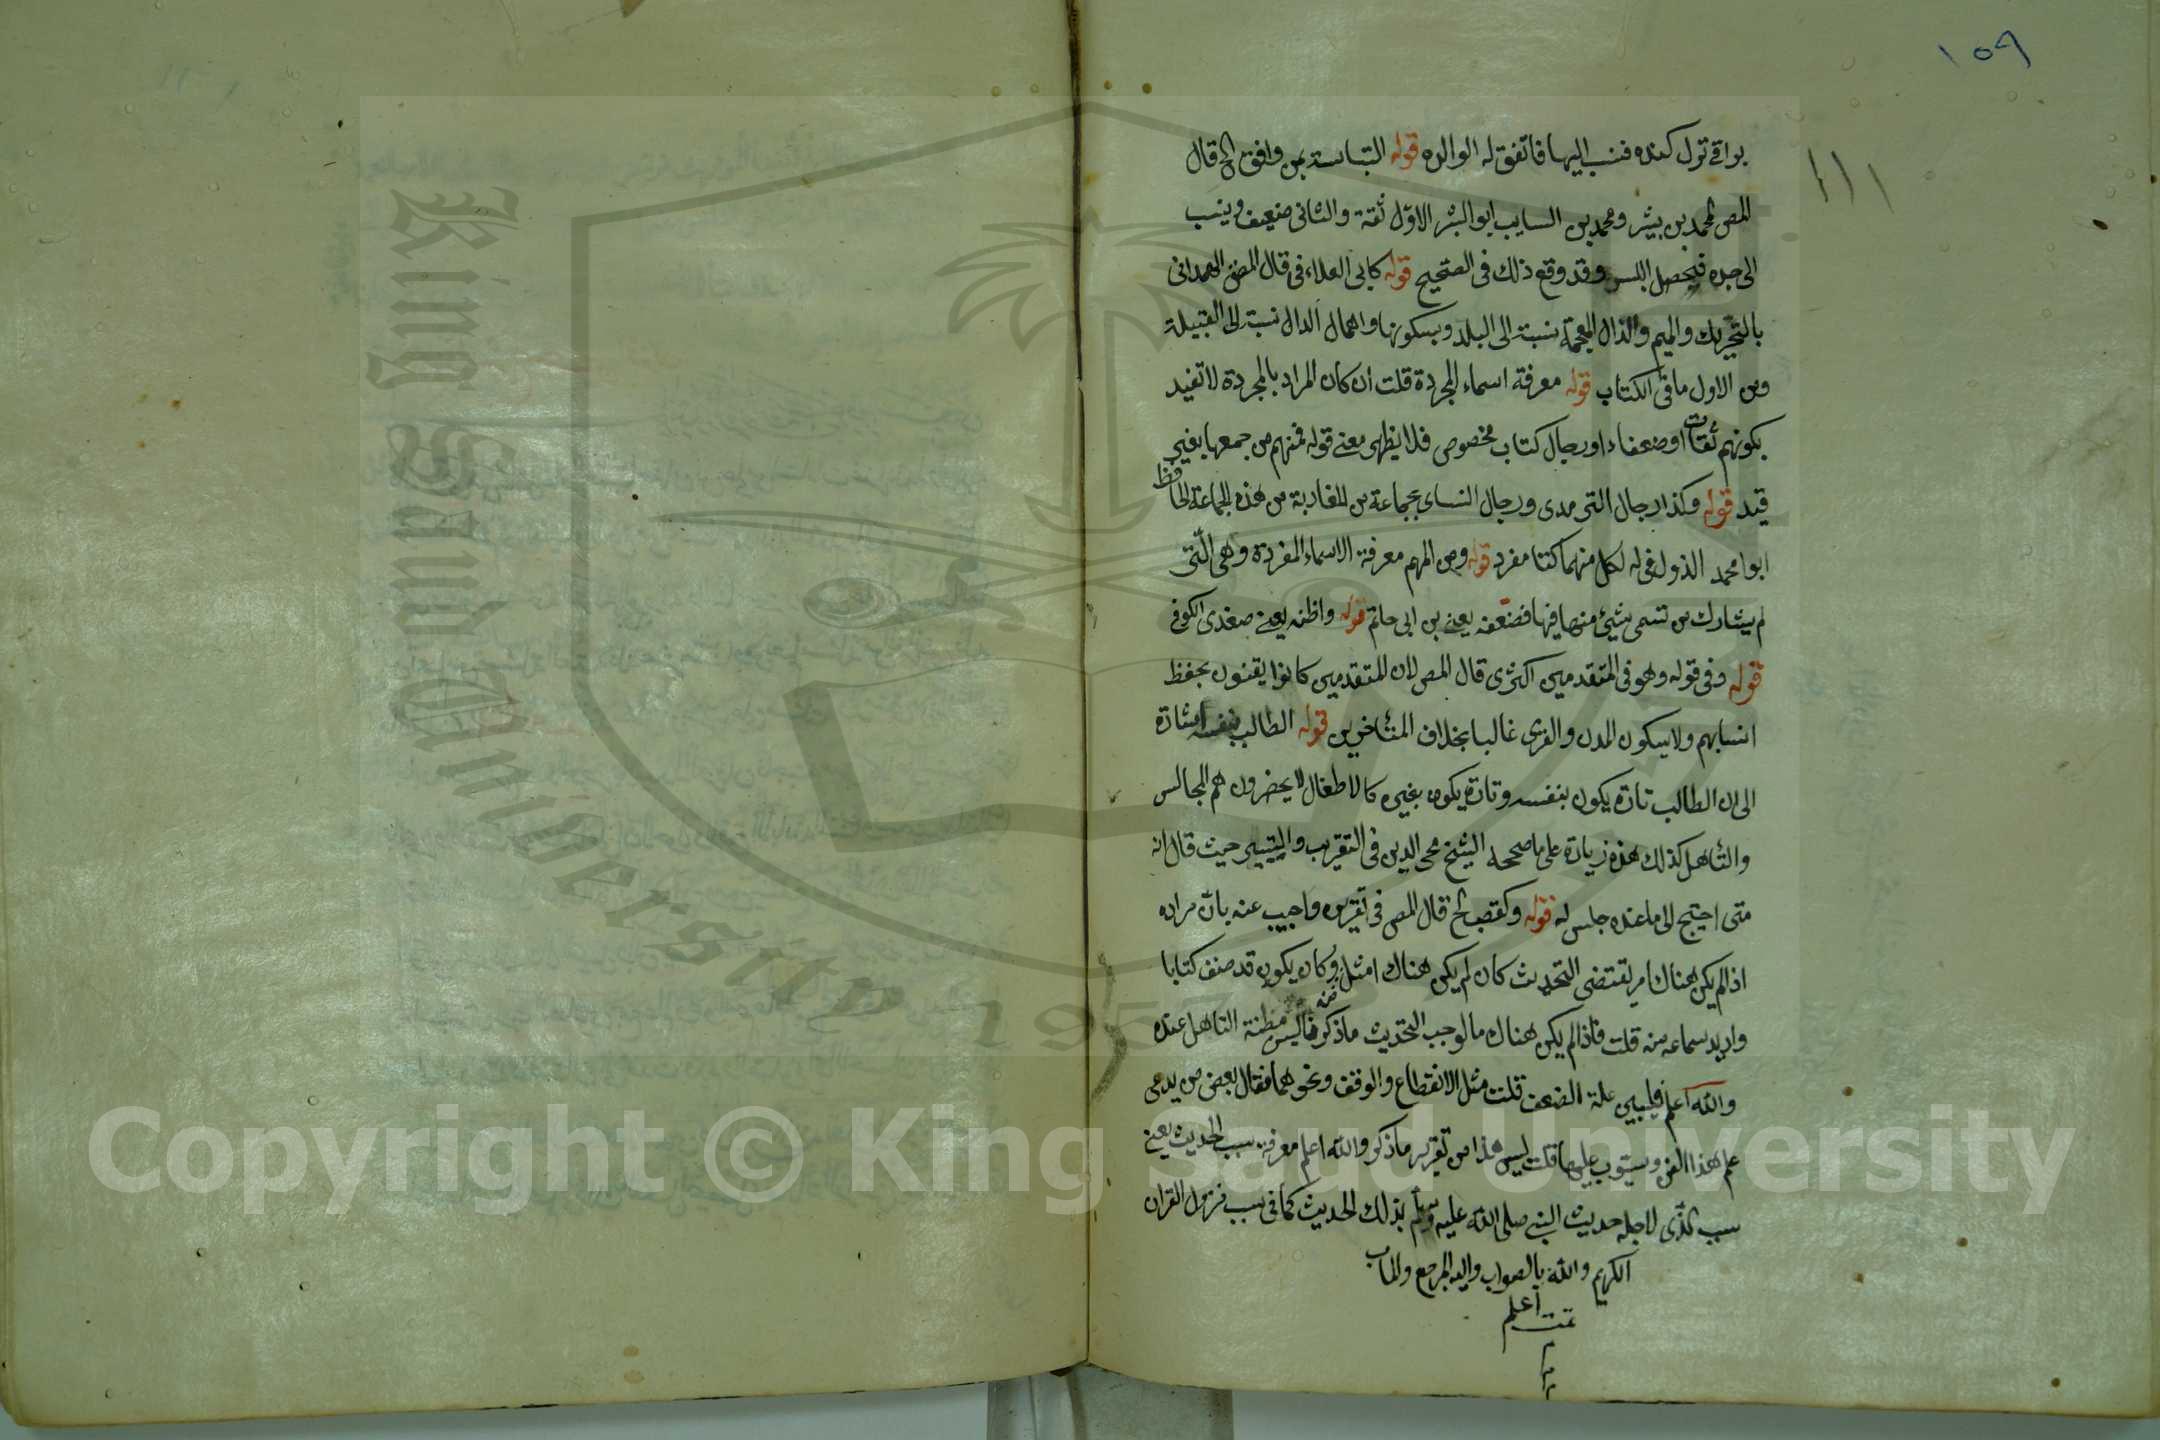 ١٥٩
١١١
نزل كنده فنسب اليها فاتفق له الوالده قوله التباسه بمن وافق الخ قال
المص محمد بن بشر ومحمد بن السايب ابو البشر الاول ثقة والثانى ضعيف وينسب
الى جده فيحصل اللبس وقد وقع ذلك فى الصحيح قوله كابى العلاء فى قال المص الهمدانى
بالتحريك والميم والذال المعجمة نسبة الى البلد وبسكونها واهمال الدال نسبة الى القبيلة
ومن الاول ما فى الكتاب قوله معرفة اسماء المجردة قلت ان كان المراد بالمجردة لا تفيد
بكونهم ثقات او ضعفاء او رجال كتاب مخصوص فلا يظهر معنى قوله فمنهم من جمعها بغير
قيد قوله وكذا رجال الترمدى ورجال النساى بجماعة من المغاربة من هذه الجماعة الحافظ
ابوا محمد له لكل منهما كتا مفرد قوله ومن المهم معرفة الاسماء المفردة وهى الّتى
لم يشارك من تسمى بشيئ منها فيها فضعفه يعنى بن ابى حاتم قوله واظنه يعنى صغدى الكوفى
قوله وفى قوله وهو فى المتقدمين اكثرى قال المص لان المتقدمين كانوا يقنون بحفظ
انسابهم ولا يسكون المدن والقرى غالبا بخلاف المتأخرين قوله الطالب بنفسه اشارة
الى ان الطالب تارة يكون بنفسه وتارة يكون بغيره كالاطفال لا يحضرون هم المجالس
والتأهل كذلك هذه زيادة على ما صححه الشيخ محى الدين فى التقريب والتيسير حيث قال انه
متى احتج الى ما عنده جلس له قوله وكعقب الخ قال المص فى تقريره واجيب عنه بان مراده
اذا لم يكن هناك امر يقتضى التحديث كان لم يكن هناك امثل منه وكان يكون قد صنف كتابا
واريد سماعه منه قلت فاذا لم يكن هناك ما لوجب التحديث ما ذكر فاليس مظنة التاهل عنده
والله اعلم فليبين علة الضعف قلت مثل الانقطاع والوقف ونحوهما فقال بعض من يدعى
علم هذا الفن ويستوب عليها قلت ليس هذا من تقرير ما ذكر والله اعلم معرفة سبب الحديث يعنى
سبب الذى لاجله حديث النبى صلى الله عليه وسلم بذلك الحديث كما فى سبب نزول القران
الكريم والله بالصواب واليه المرجع والمآب
اعلم
تمت
King Saud University 1957
Copyright © King Saud University